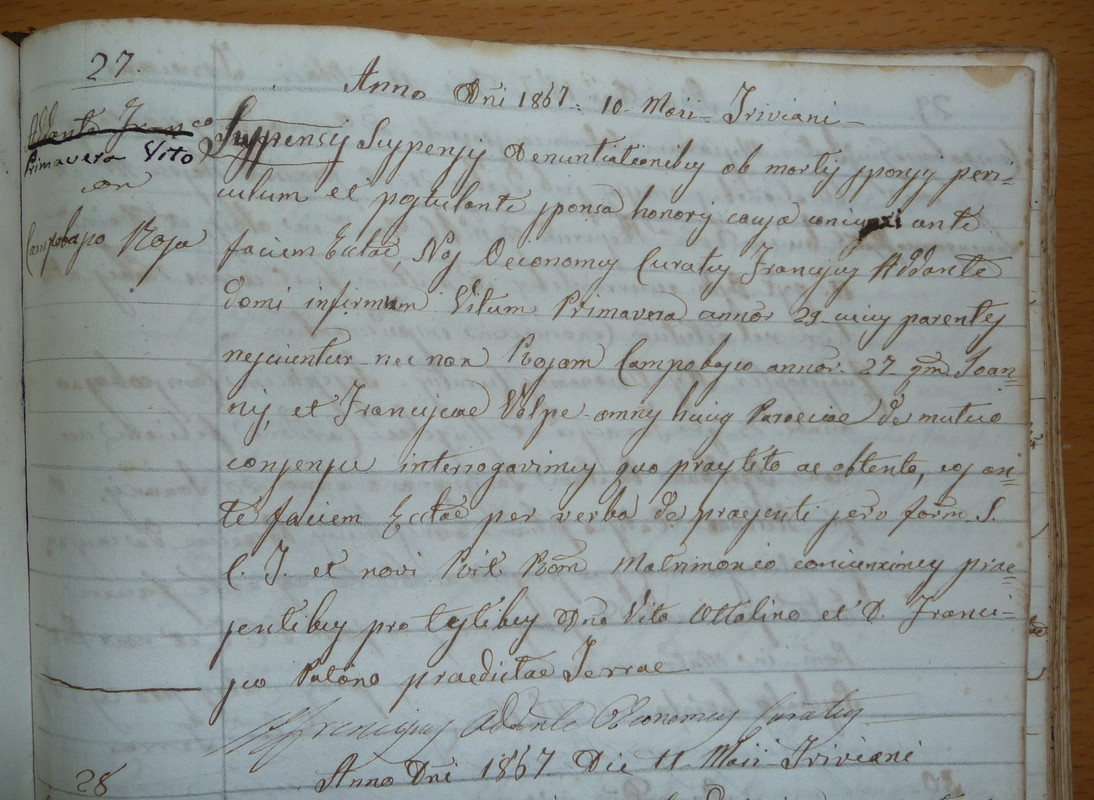 27.
Anno Dni 1867. 10. Maii Triviani
Addante Franco
Primavera Vito
con
Campobasso Rosa
Suspensis Suspensis Denuntiationibus ob mortis sponsi peri=
culum et postulante sponsa honoris causa coniugi ante
faciem Ecclae, Nos Oeconomus Curatus Franciscus Addante
domi infirmum Vitum Primavera annor 29 cuius parentes
nesciuntur nec non Rosam Campobasso annor. 27 qm Joan=
nis, et Franciscae Volpe omnes huius Paroeciae de mutuo
consensu interrogavimus quo praestito ac obtento, eos an=
te faciem Ecclae per verba de praesenti serv form. S.
C. T. et novi Rit Rom Matrimonio coniunximus prae=
sentibus pro testibus Dno Vito Ottolino et D. Franci=
sco Polono praedictae Terrae
Franciscus Addante Oeconomus Curatus
28
Anno Dni 1867. Die 11 Maii Triviani